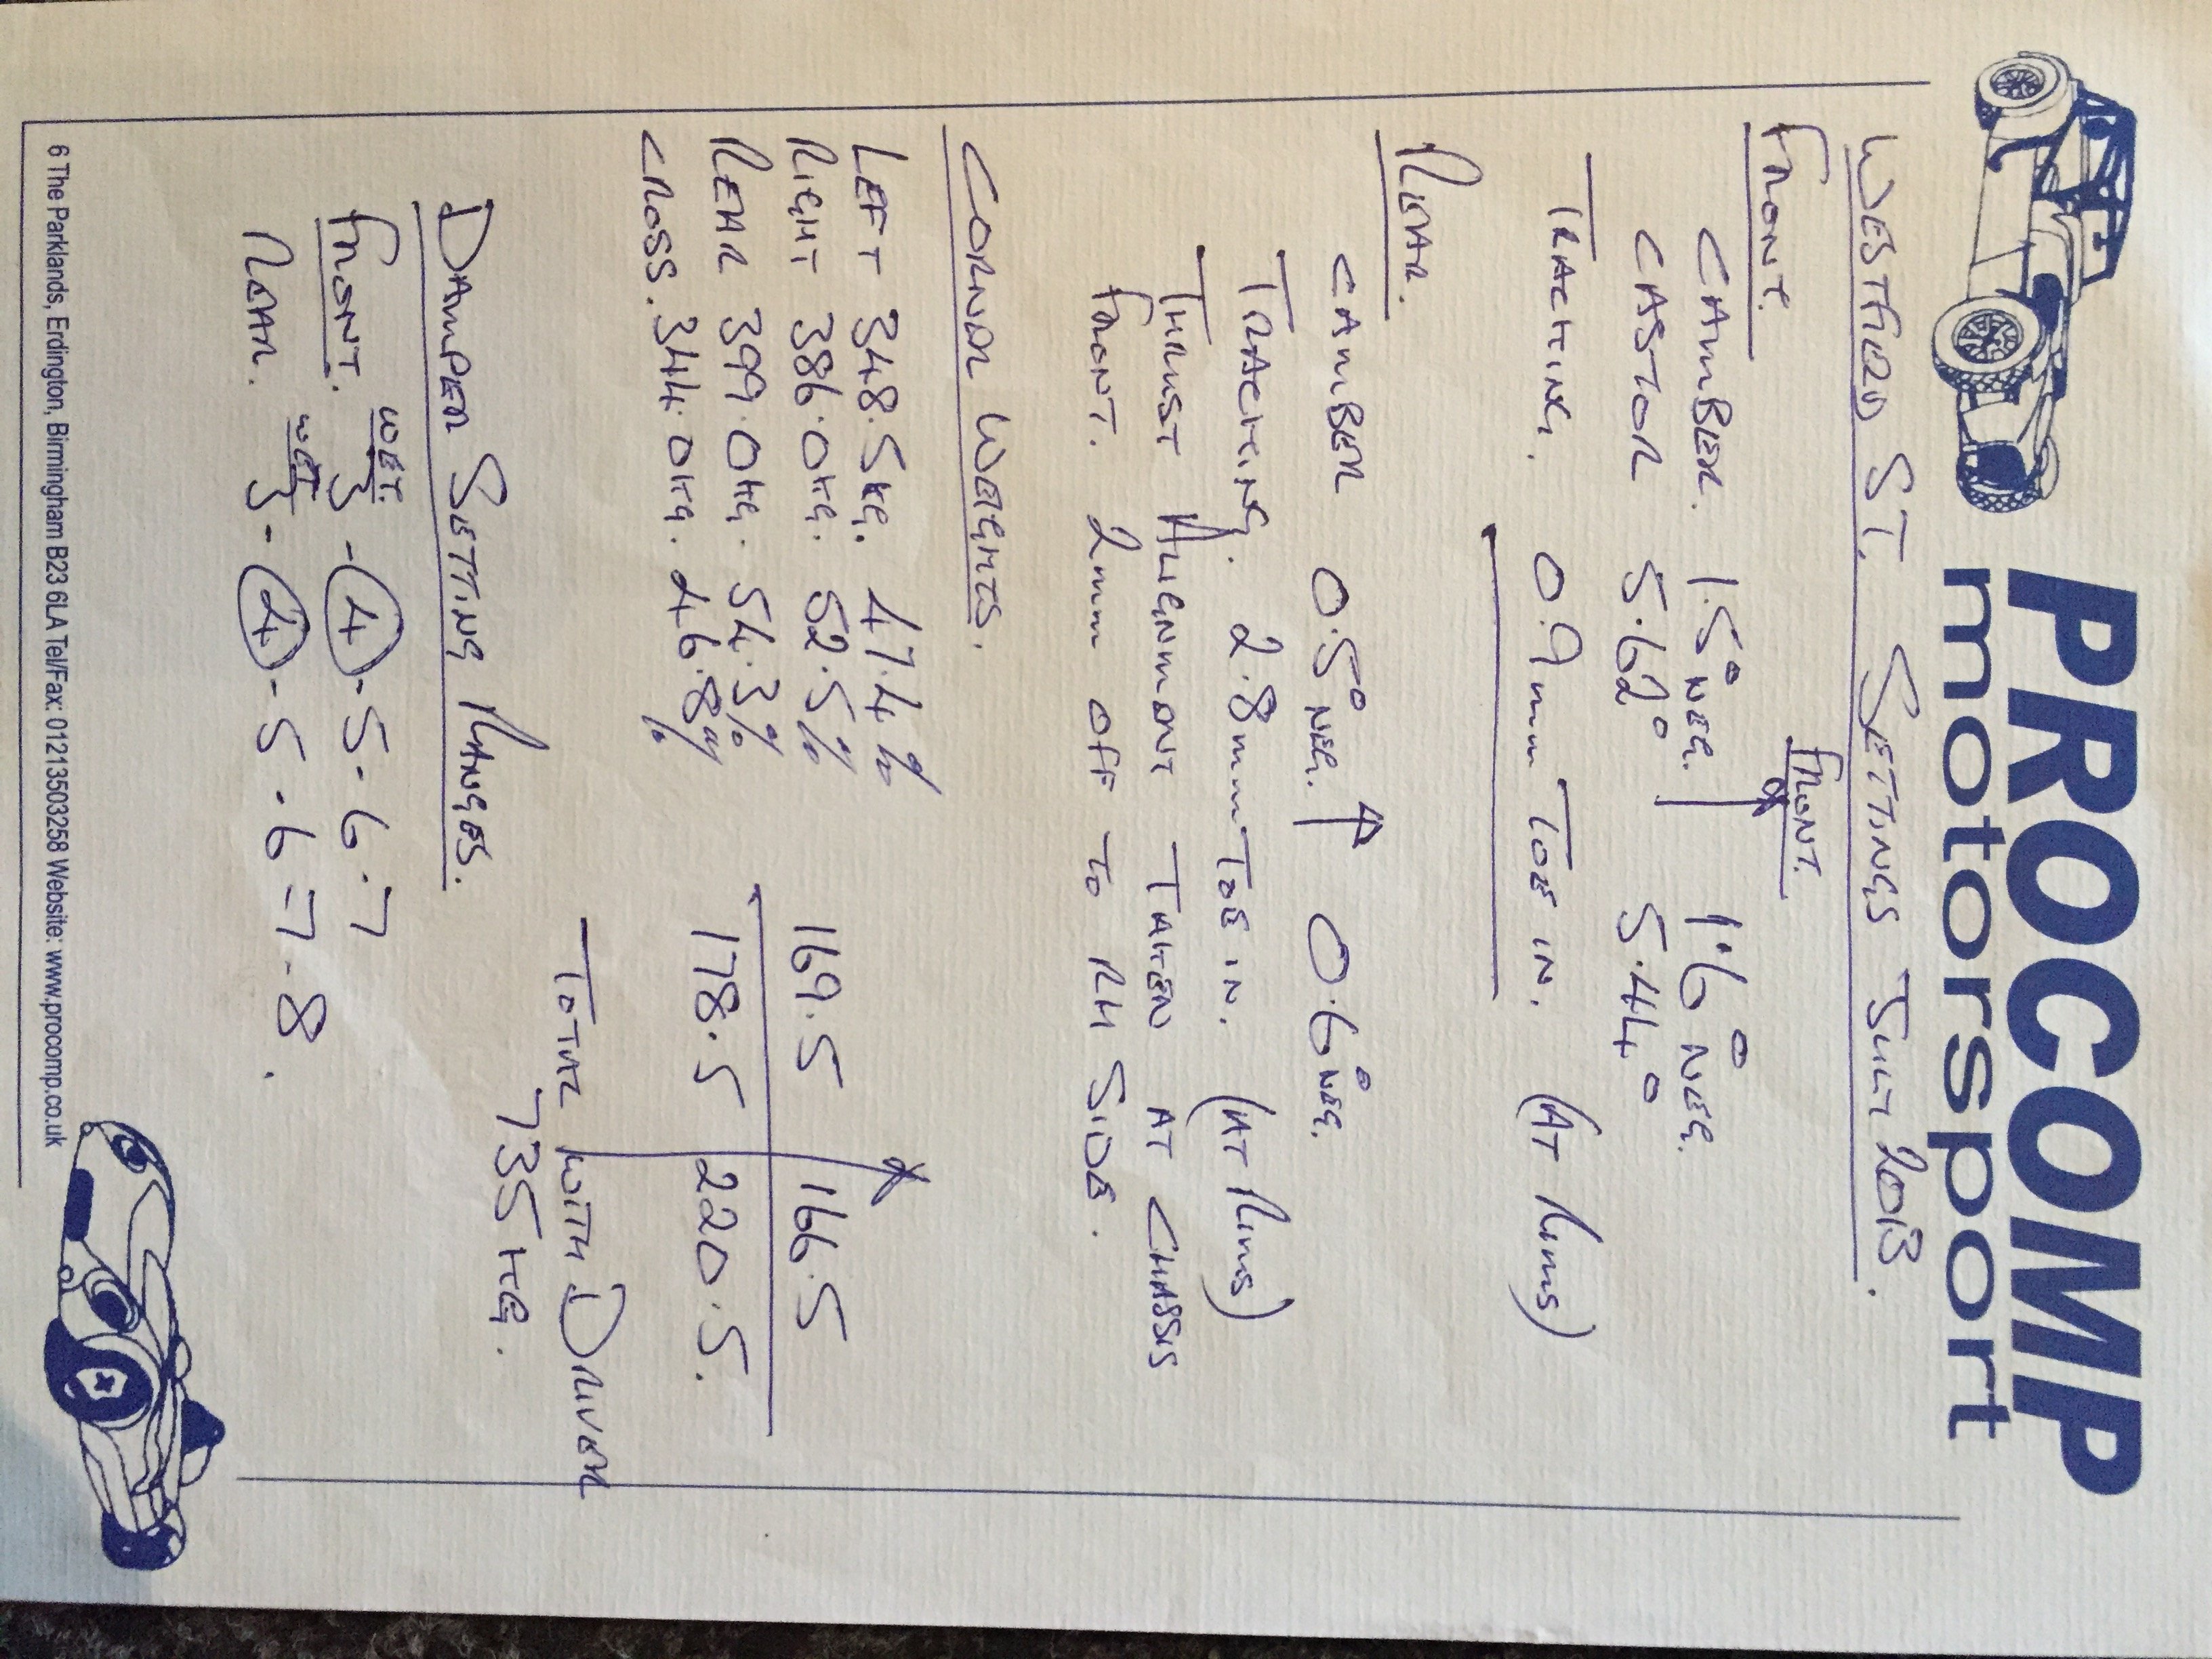 PROCOMP
motorsport
WESTFIELD ST. SETTINGS JULY 2013.
FRONT.
FRONT.
CAMBER. 1.5° NEG. 1.6° NEG.
CASTOR 5.62° 5.44°
TRACKING. 0.9mm TOE IN. (AT RIMS)
REAR.
CAMBER 0.5° NEG. 0.6° NEG.
TRACKING. 2.8mm TOE IN. (AT RIMS)
THRUST ALIGNMENT TAKEN AT CHASSIS
FRONT. 2mm OFF TO RH SIDE.
CORNER WEIGHTS.
LEFT 348.5KG. 47.4%
RIGHT 386.0KG. 52.5% 169.5 166.5
REAR 399.0KG. 54.3% 178.5 220.5.
CROSS. 344.0KG. 46.8%
TOTAL WITH DRIVER
735KG.
DAMPER SETTING RANGES.
WET
FRONT. 3-4-5-6-7
WET
REAR. 3-4-5-6-7-8.
6 The Parklands, Erdington, Birmingham B23 6LA Tel/Fax: 01213503258 Website: www.procomp.co.uk